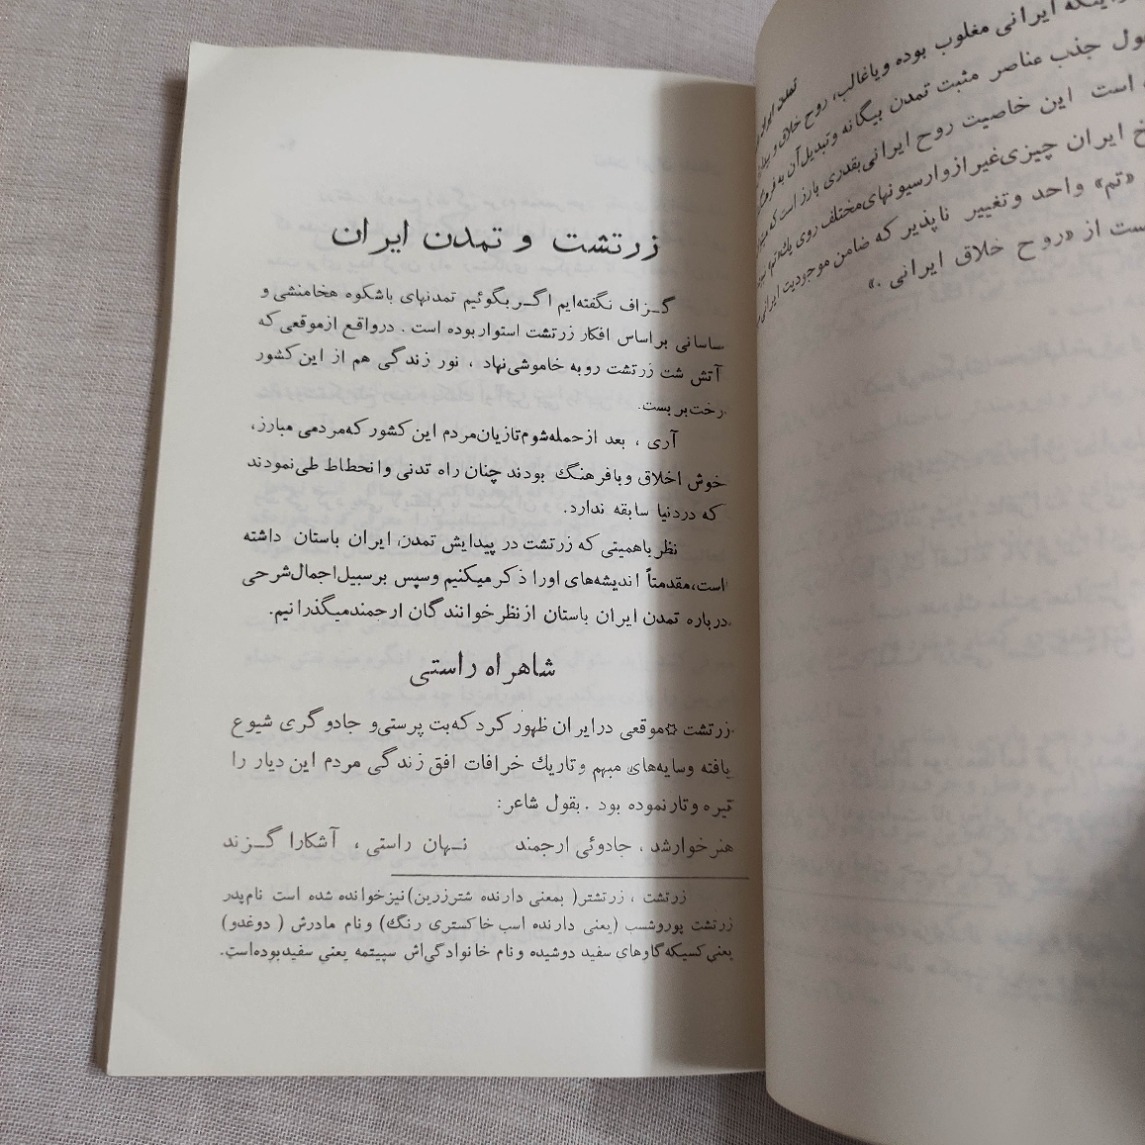 زرتشت و تمدن ایران
گـزاف نگفته‌ایم اگـر بگوئیم تمدنهای باشکوه هخامنشی و
ساسانی براساس افکار زرتشت استوار بوده است . درواقع ازموقعی که
آتش شت زرتشت روبه خاموشی‌نهاد ، نور زندگی هم از این کشور
رخت‌بربست.
آری ، بعد ازحمله‌شوم‌تازیان‌مردم این‌کشور که‌مردمی مبارز،
خوش اخلاق وبافرهنگ بودند چنان راه تدنی وانحطاط طی‌نمودند
که دردنیا سابقه ندارد.
نظر باهمیتی که زرتشت در پیدایش تمدن ایران باستان داشته
است،مقدمتاً اندیشه‌های اورا ذکرمیکنیم وسپس برسبیل‌اجمال‌شرحی
درباره تمدن ایران باستان ازنظرخوانندگان ارجمندمیگذرانیم.
شاهراه راستی
زرتشت ☆موقعی درایران ظهور کرد که‌بت پرستی‌و جادوگری شیوع
یافته وسایه‌های مبهم وتاریك خرافات افق زندگی مردم این دیار را
تیره وتارنموده بود . بقول شاعر:
هنرخوارشد ، جادوئی ارجمند نـهان راستی ، آشکارا گـزند
زرتشت ، زرتشتر( بمعنی دارنده شترزرین)نیزخوانده شده است نام‌پدر
زرتشت پوروشسب (یعنی دارنده اسب خاکستری رنگ) ونام مادرش ( دوغدو)
یعنی‌کسیکه‌گاوهای سفید دوشیده ونام خانوادگی‌اش سپیتمه یعنی سفیدبوده‌است.
اینکه ایرانی مغلوب بوده ویاغالب، روح خلاق و
جذب عناصر مثبت تمدن بیگانه وتبدیل‌آن به
است این خاصیت روح ایرانی‌بقدری بارز است که
ایران چیزی‌غیر از واریسیونهای‌مختلف روی یك
«تم» واحد وتغییر ناپذیر که ضامن موجودیت ایرانی
از «روح خلاق ایرانی .»